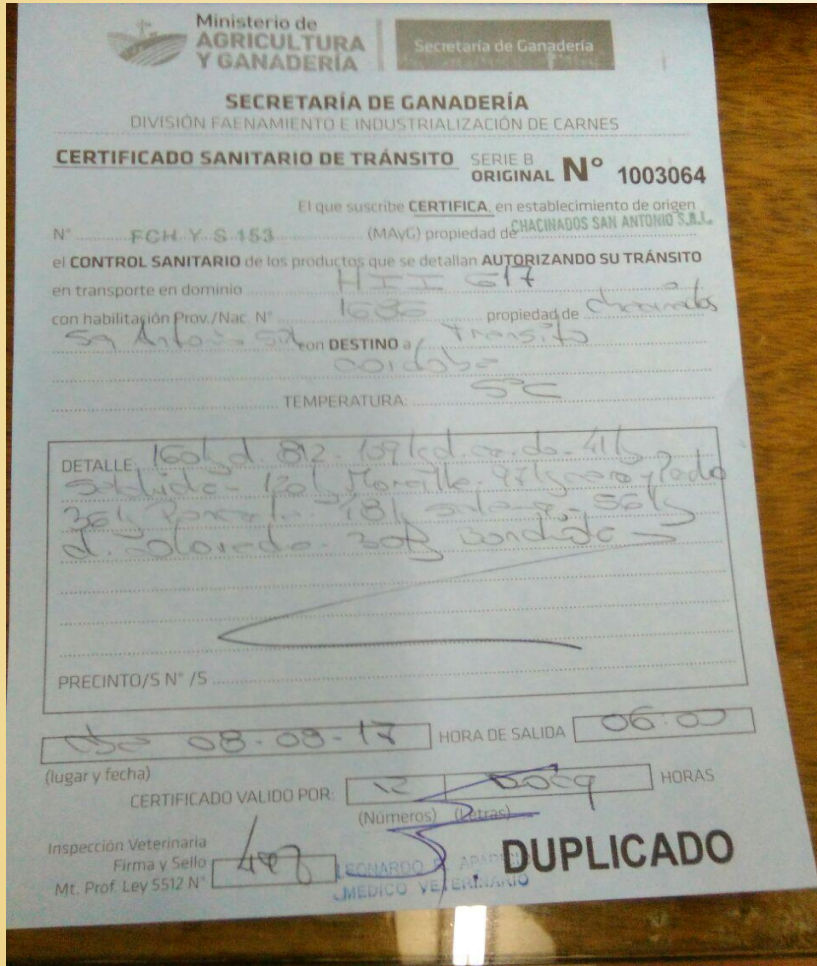 Ministerio de
AGRICULTURA
Y GANADERÍA
Secretaría de Ganadería
SECRETARÍA DE GANADERÍA
DIVISIÓN FAENAMIENTO E INDUSTRIALIZACIÓN DE CARNES
CERTIFICADO SANITARIO DE TRÁNSITO SERIE B
ORIGINAL N° 1003064
El que suscribe CERTIFICA, en establecimiento de origen
N° FCH Y S 153 (MAyG) propiedad de CHACINADOS SAN ANTONIO S.R.L.
el CONTROL SANITARIO de los productos que se detallan AUTORIZANDO SU TRÁNSITO
en transporte en dominio HII 617
con habilitación Prov./Nac. N° 1686 propiedad de
con DESTINO a Transito
cordoba
TEMPERATURA: 5°C
DETALLE 160 812 - 109 - 41
Salchicha - Morcilla -
36
Colorado - 30 Bondiola
PRECINTO/S N° /S
08-08-17 HORA DE SALIDA 06:00
(lugar y fecha)
CERTIFICADO VALIDO POR: 12 HORAS
(Números) (Letras)
Inspección Veterinaria
Firma y Sello
Mt. Prof. Ley 5512 N°
LEONARDO
MEDICO VETERINARIO
DUPLICADO